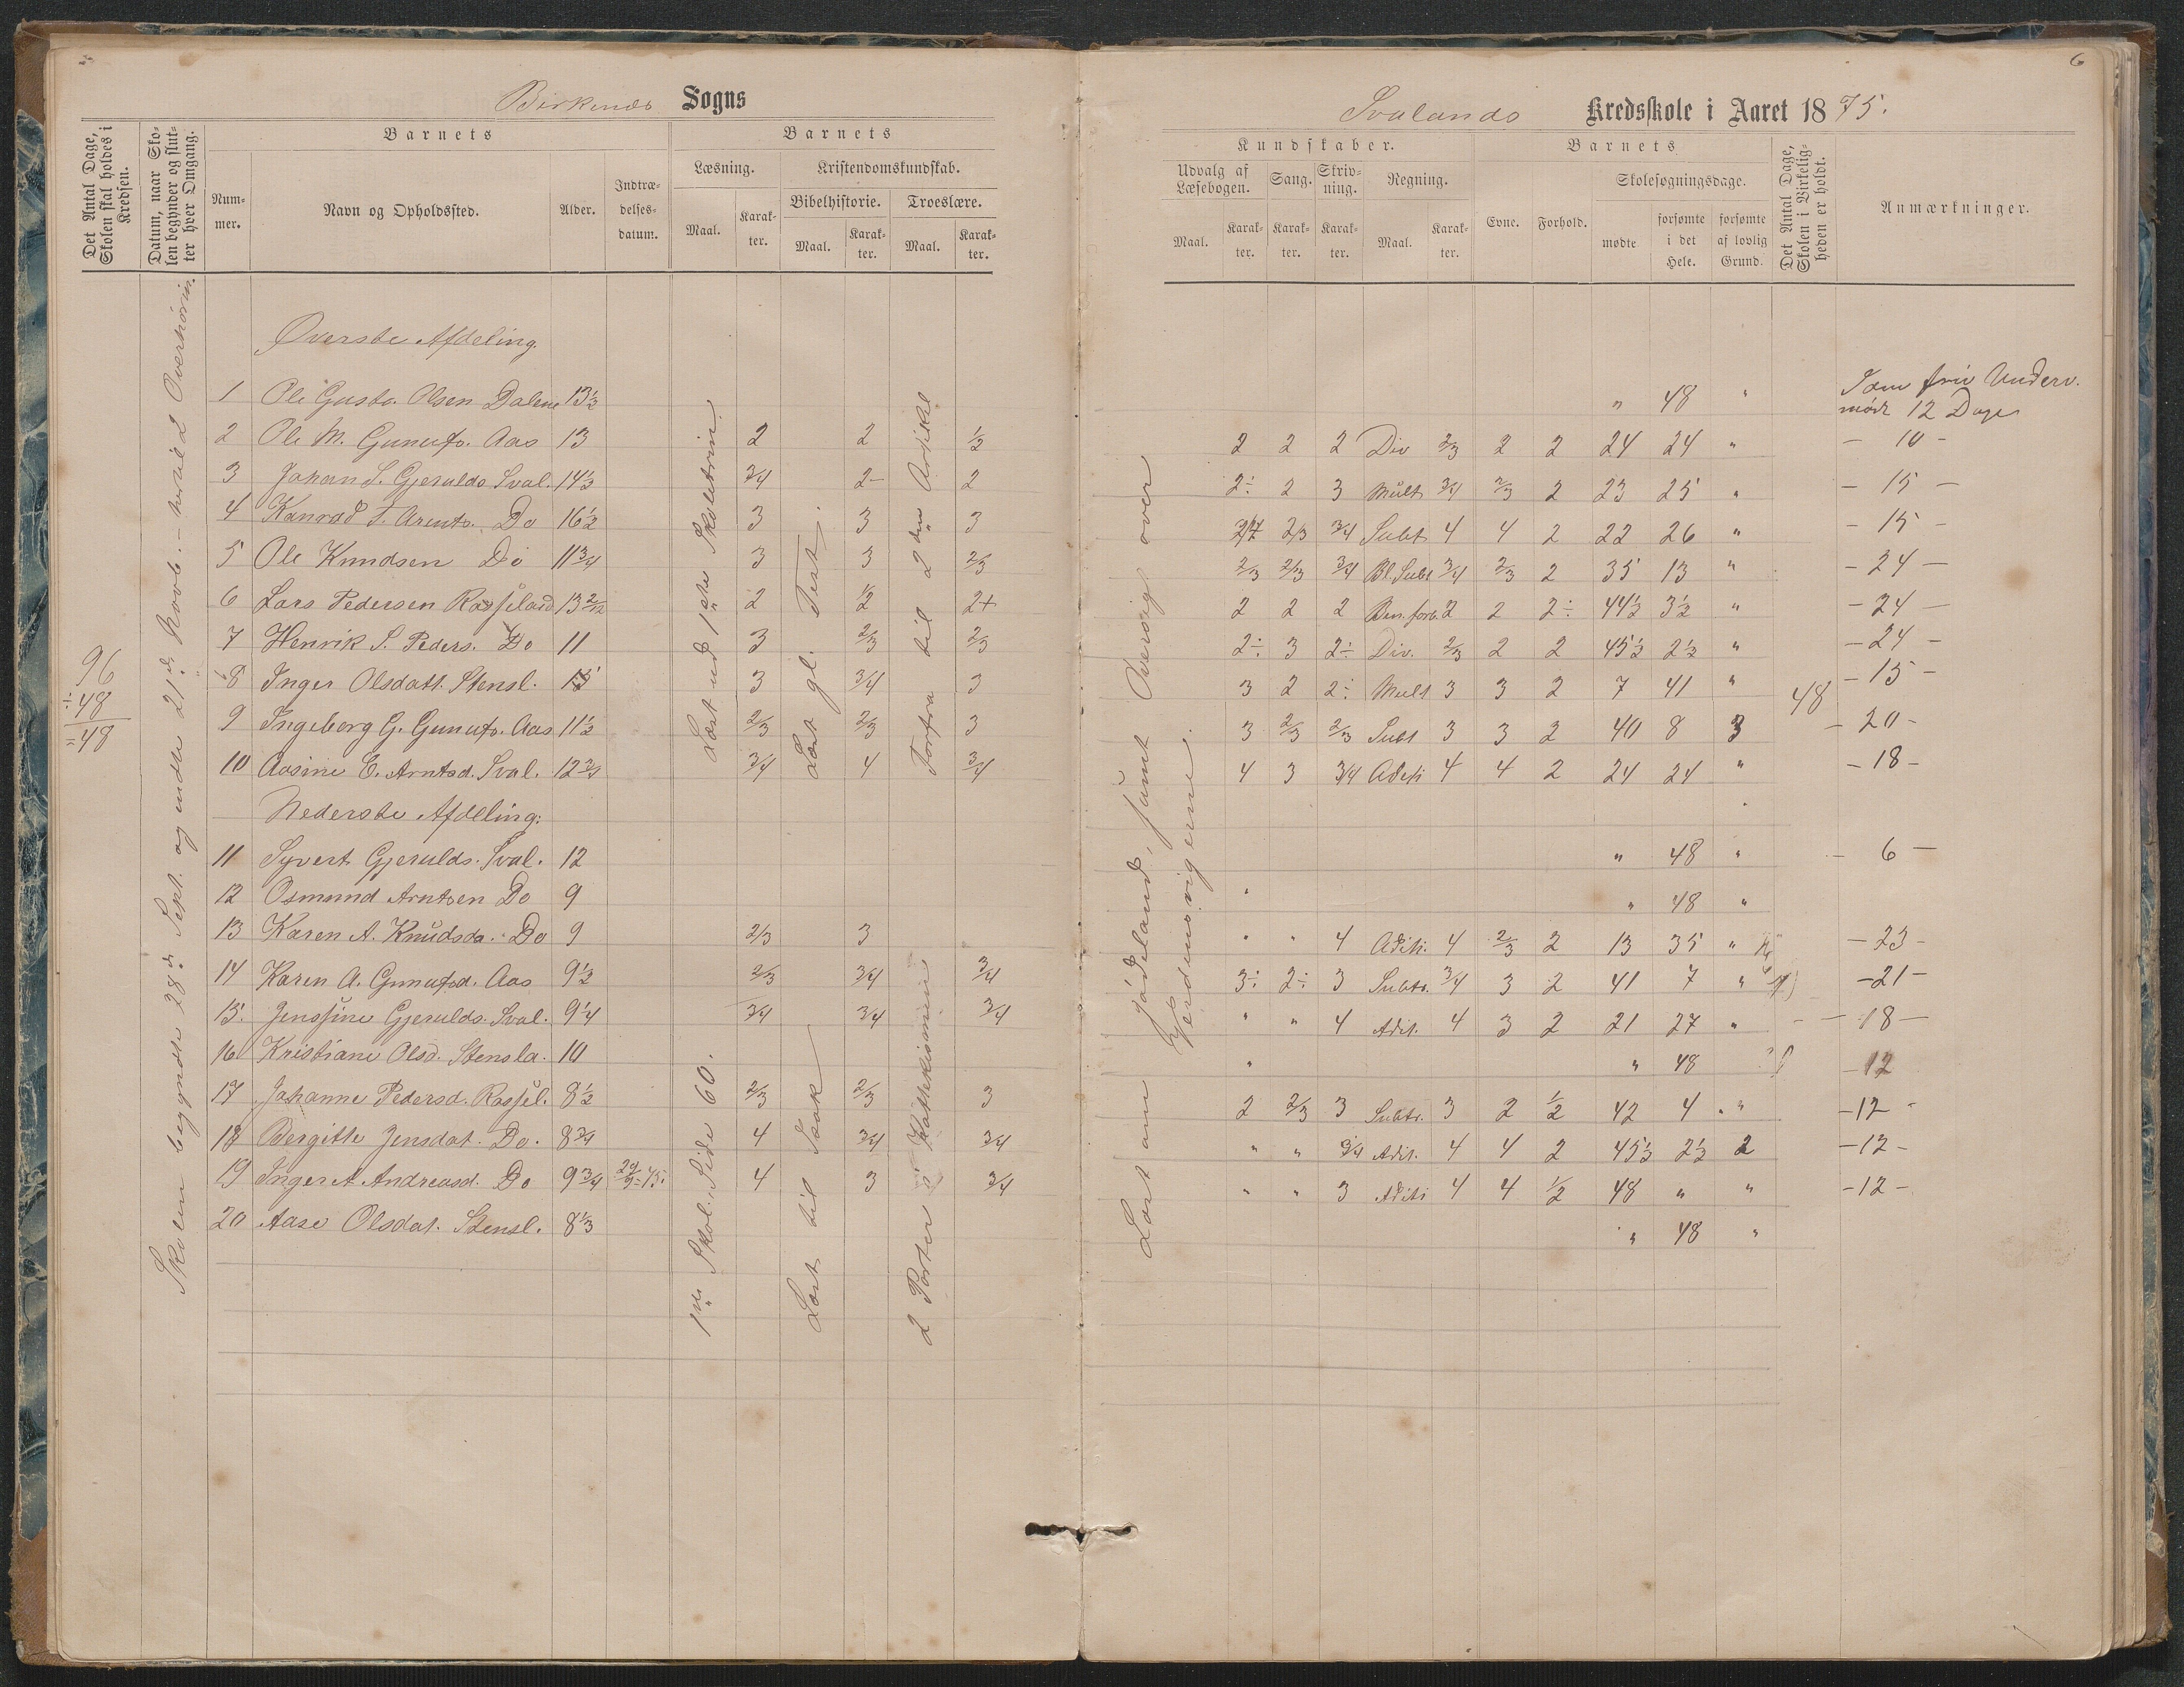 6
Birkenes Sogns
Svalands Kredsskole i Aaret 1875.
Det Antal Dage, Skolen skal holdes i Kredsen.
Datum, naar Skolen begynder og slutter hver Omgang.
Barnets
Nummer.
Navn og Opholdssted.
Alder.
Indtrædelsesdatum.
Barnets
Læsning.
Kristendomskundskab.
Bibelhistorie.
Troeslære.
Maal.
Karakter.
Maal.
Karakter.
Maal.
Karakter.
Kundskaber.
Udvalg af Læsebogen.
Sang.
Skrivning.
Regning.
Maal.
Karakter.
Karakter.
Karakter.
Maal.
Karakter.
Barnets
Evne.
Forhold.
Skolesøgningsdage.
mødte
forsømte i det Hele.
forsømte af lovlig Grund.
Det Antal Dage, Skolen i Virkeligheden er holdt.
Anmærkninger.
96
÷48
=48
Skolen begyndte 28de Sept. og endte 21de Novb.
Øverste Afdeling.
1 Ole Gustv. Olsen Dalene 13½ " 48 "
mødt 12 Dage
2 Ole M. Gunufs. Aas 13 2 2 ½ 2 2 2 Div 2/3 2 2 24 24 " – 10 –
3 Johan S. Gjerulds Sval. 14½ 3/4 2– 2 2÷ 2 3 Mult 3/4 2/3 2 23 25 " – 15 –
4 Konrad T. Arents. Do 16½ 3 3 3 2/3 3/4 Subt 4 4 2 22 26 " – 15 –
5 Ole Knudsen Do 11 3/4 3 3 2/3 2/3 2/3 3/4 Bl. Subt 3/4 2/3 2 35 13 " – 24 –
6 Lars Pedersen Rosseland 13 2/12 2 ½ 2+ 2 2 2 Ben. forb. 2 2 2÷ 44½ 3½ " – 24 –
7 Henrik S. Peders. Do 11 3 2/3 2/3 2÷ 3 2÷ Div. 2/3 2 2 45½ 2½ " – 24 –
8 Inger Olsdatt. Stensl. 3 3/4 3 3 2 2÷ Mult 3 3 2 7 41 " 48 – 15 –
9 Ingeborg G. Gunufs. Aas 11½ 2/3 2/3 3 3 2/3 2/3 Subt 3 3 2 40 8 3 – 20 –
10 Aasine E. Arntsd. Sval. 12 3/4 3/4 4 3/4 4 3 3/4 Aditi 4 4 2 24 24 " – 18 –
Læst ud 1ste Skoletrin
Læst gl. Test.
Forfra til 2den Artikkel
Nederste Afdeling:
11 Syvert Gjerulds. Sval. 12 " 48 " – 6 –
12 Osmund Arntsen Do 9 " 48 "
13 Karen A. Knudsda. Do 9 2/3 3 " " 4 Aditi. 4 2/3 2 13 35 " – 23 –
14 Karen A. Gunufsd. Aas 9½ 2/3 3/4 3/4 3÷ 2÷ 3 Subtr. 3/4 3 2 41 7 " – 21 –
15. Jenssine Gjerulds. Sval. 9¼ 3/4 3/4 3/4 " " 4 Adit. 4 3 2 21 27 " – 18 –
16 Kristiane Olsd. Stensla. 10 " 48 – 12
17 Johanne Pedersd. Rossel. 8½ 2/3 2/3 3 2 2/3 3 Subtr. 3 2 ½ 42 4 " – 12 –
18 Bergitte Jensdat. Do. 8 3/4 4 3/4 3/4 " " 3/4 Adit. 4 4 2 45½ 2½ 2 – 12 –
19 Inger A. Andreasd. Do 9 3/4 29/9–75. 4 3 3/4 " " 3 Aditi 4 4 ½ 48 " " – 12 –
20 Aase Olsdat. Stensl. 8⅓ " 48 "
1ste Skol. Side 60.
Læst til Isak
2 Parter i Kathekismen
Læst om Jødeland, samt Oversigt over
Verdensrigerne.